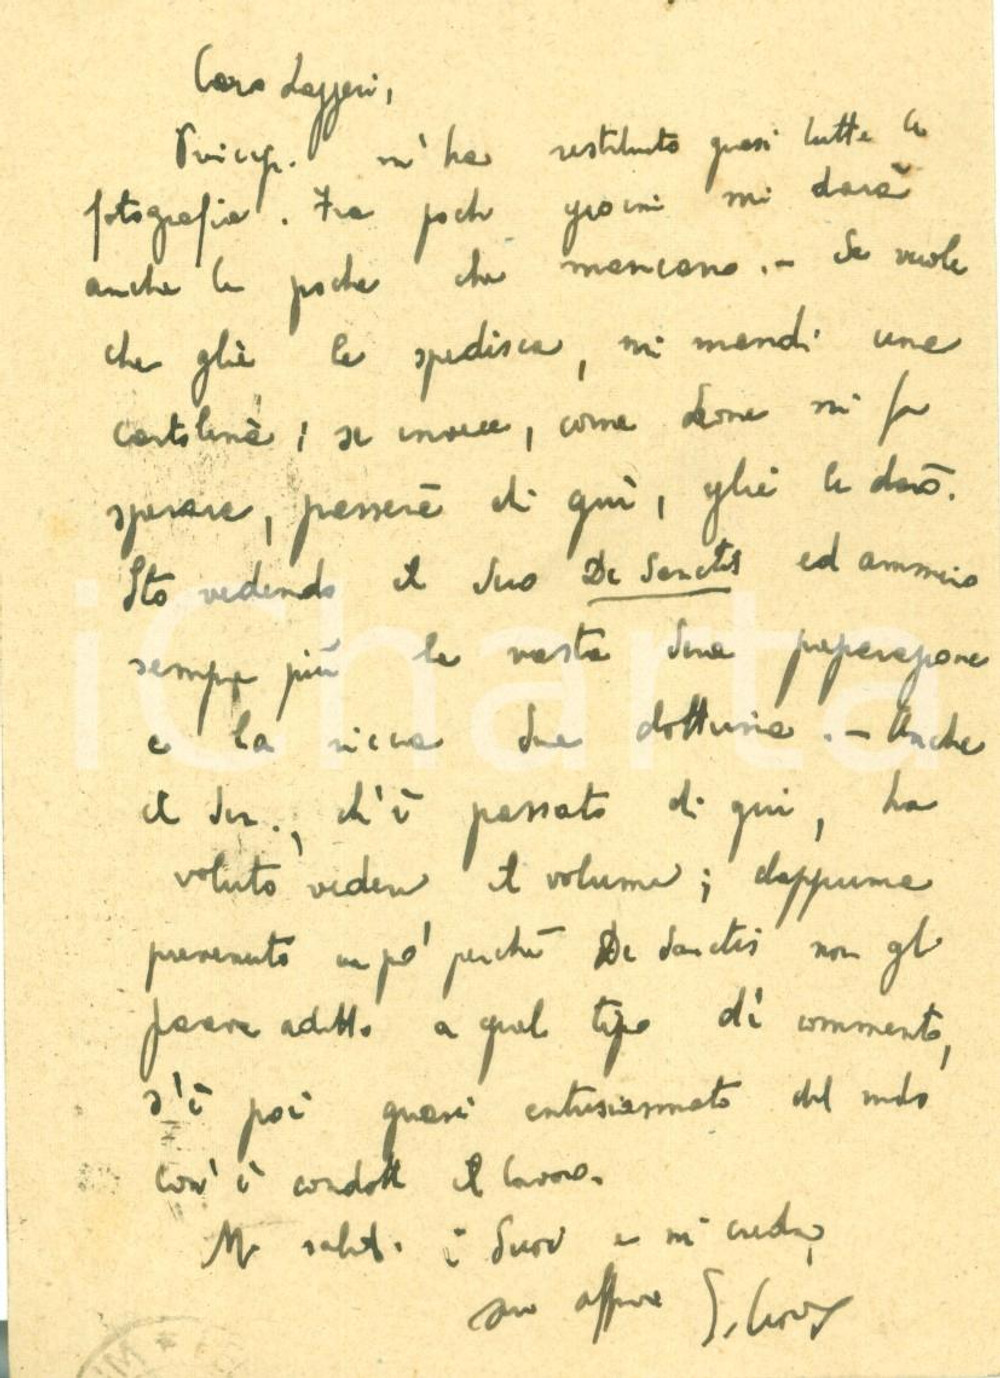 Caro Lazzeri,
Princip. m'ha restituito quasi tutte le
fotografie. Fra pochi giorni mi darà
anche le poche che mancano. - Se vuole
che gliè le spedisca, mi mandi una
cartolina; se invece, come Leone mi fa
sperare, passerà di quì, gliè le darò.
Sto vedendo il Suo De Sanctis ed ammiro
sempre più la vasta Sua preparazione
e la ricca Sua dottrina. - Anche
il Sen., ch'è passato di qui, ha
voluto vedere il volume; dapprima
prevenuto un po' perché De Sanctis non gli
pareva adatto a quel tipo di commento,
s'è poi quasi entusiasmato del modo
com'è condotto il lavoro.
Mi saluti i Suoi e mi creda,
suo aff.mo
iCharta